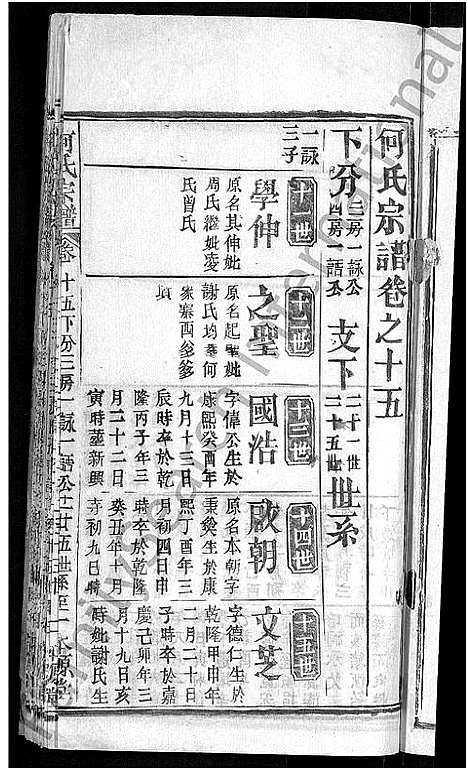 何氏宗譜卷之十五
下分三房一詠公四房一語公支下二十一世二十五世世系
一詠三子
十一世
學伸
原名其伸妣
周氏繼妣凌
氏曾氏
十二世
之聖
原名起聖妣
謝氏均𦵏何
家寨西爹爹
十三世
國浩
字偉公生於
康熙癸酉年
九月十三日
辰時卒於乾
隆丙子年三
月二十二日
寅時𦵏新興
十四世
啟朝
原名本朝字
秉鍨生於康
熙丁酉年三
月初四日申
時卒於乾隆
癸丑年十月
初九日時
十五世
文芝
字德仁生於
乾隆甲申年
二月二十日
子時卒於嘉
慶己卯年三
月十九日亥
時妣謝氏生
何氏宗譜
卷十五下分三房一詠一語公